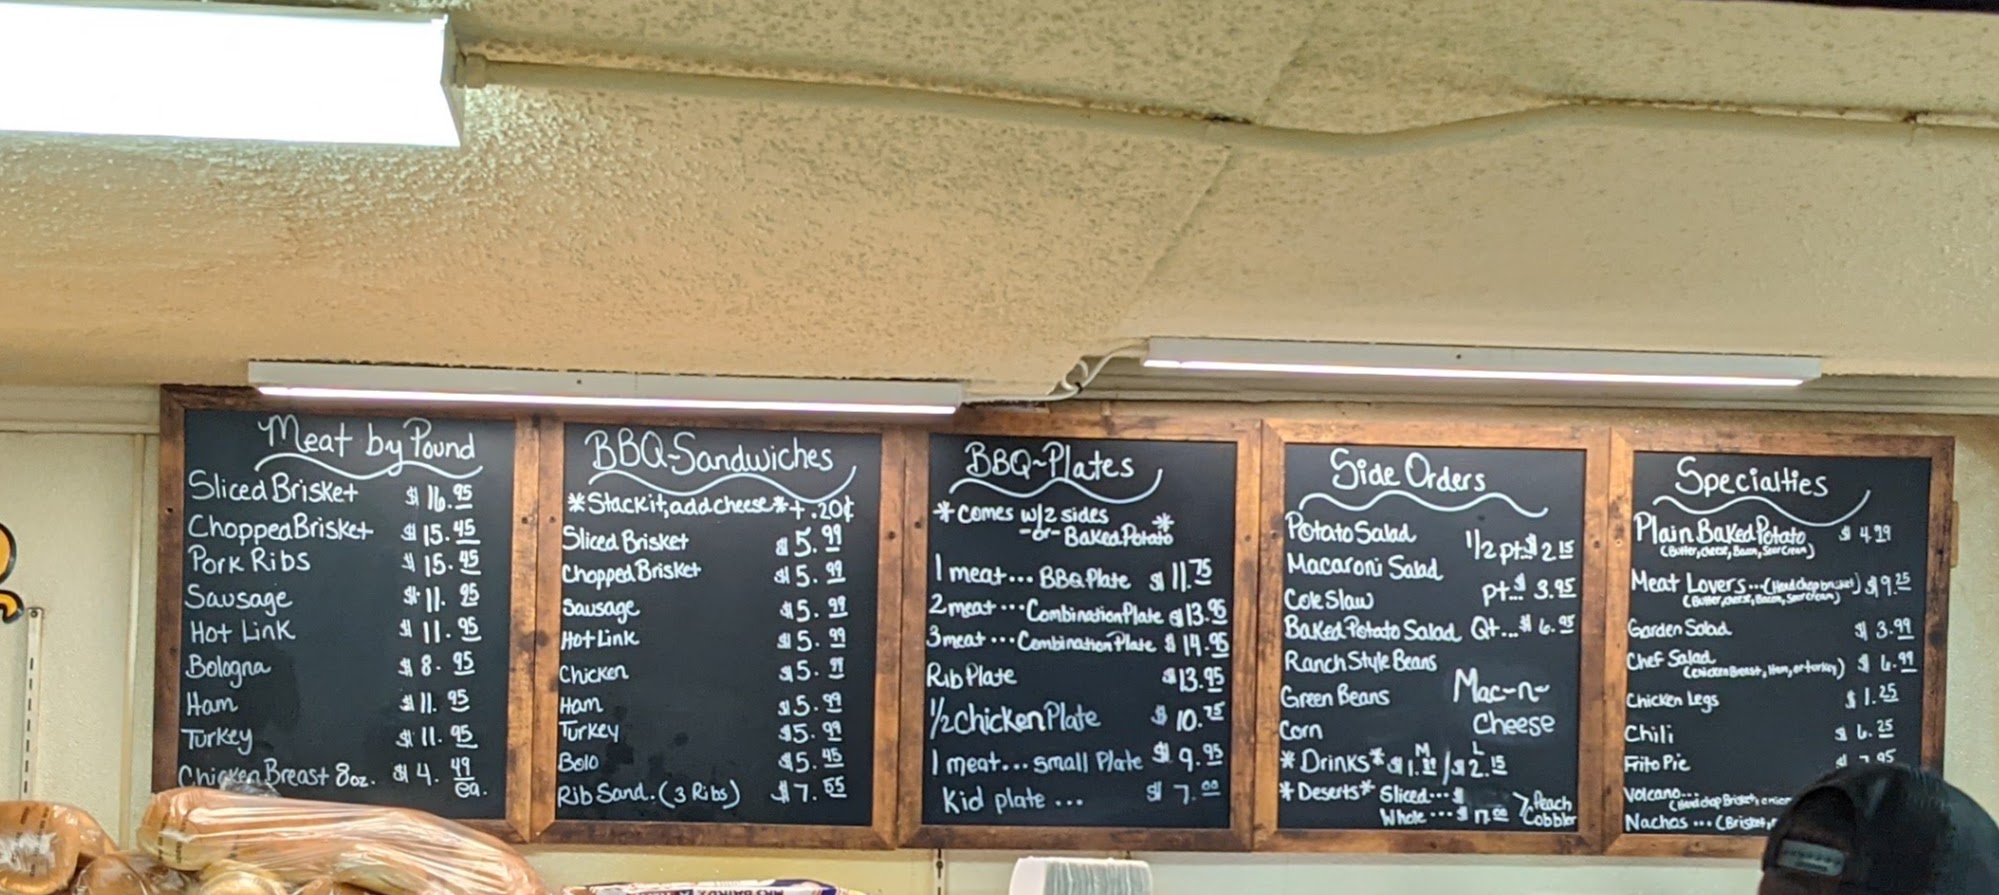 Meat by Pound
Sliced Brisket $16.95
Chopped Brisket $15.45
Pork Ribs $15.45
Sausage $11.95
Hot Link $11.95
Bologna $8.95
Ham $11.95
Turkey $11.95
Chicken Breast 8oz. $4.49 ea.
BBQ-Sandwiches
*Stack it, add cheese* +.20¢
Sliced Brisket $5.99
Chopped Brisket $5.99
Sausage $5.99
Hot Link $5.99
Chicken $5.99
Ham $5.99
Turkey $5.99
Bolo $5.45
Rib Sand. (3 Ribs) $7.55
BBQ-Plates
*Comes w/2 sides
-or- Baked Potato*
1 meat... BBQ Plate $11.75
2 meat... Combination Plate $13.95
3 meat... Combination Plate $14.95
Rib Plate $13.95
1/2 Chicken Plate $10.75
1 meat... small Plate $9.95
Kid plate ... $7.00
Side Orders
Potato Salad 1/2 pt. $2.15
Macaroni Salad
pt... $3.95
Cole Slaw
Baked Potato Salad Qt... $6.95
Ranch Style Beans
Green Beans Mac-n-
Corn Cheese
M L
*Drinks* / $2.15
*Deserts* Sliced... $
Whole ... $17.00
Peach
Cobbler
Specialties
Plain Baked Potato $4.99
(Butter, cheese, Bacon, Sour Cream)
Meat Lovers... $9.25
(Butter, cheese, Bacon, Sour Cream)
Garden Salad $3.99
Chef Salad $6.99
(Chicken Breast, Ham, or turkey)
Chicken Legs $1.25
Chili $6.25
Frito Pie
Volcano...
Nachos ...